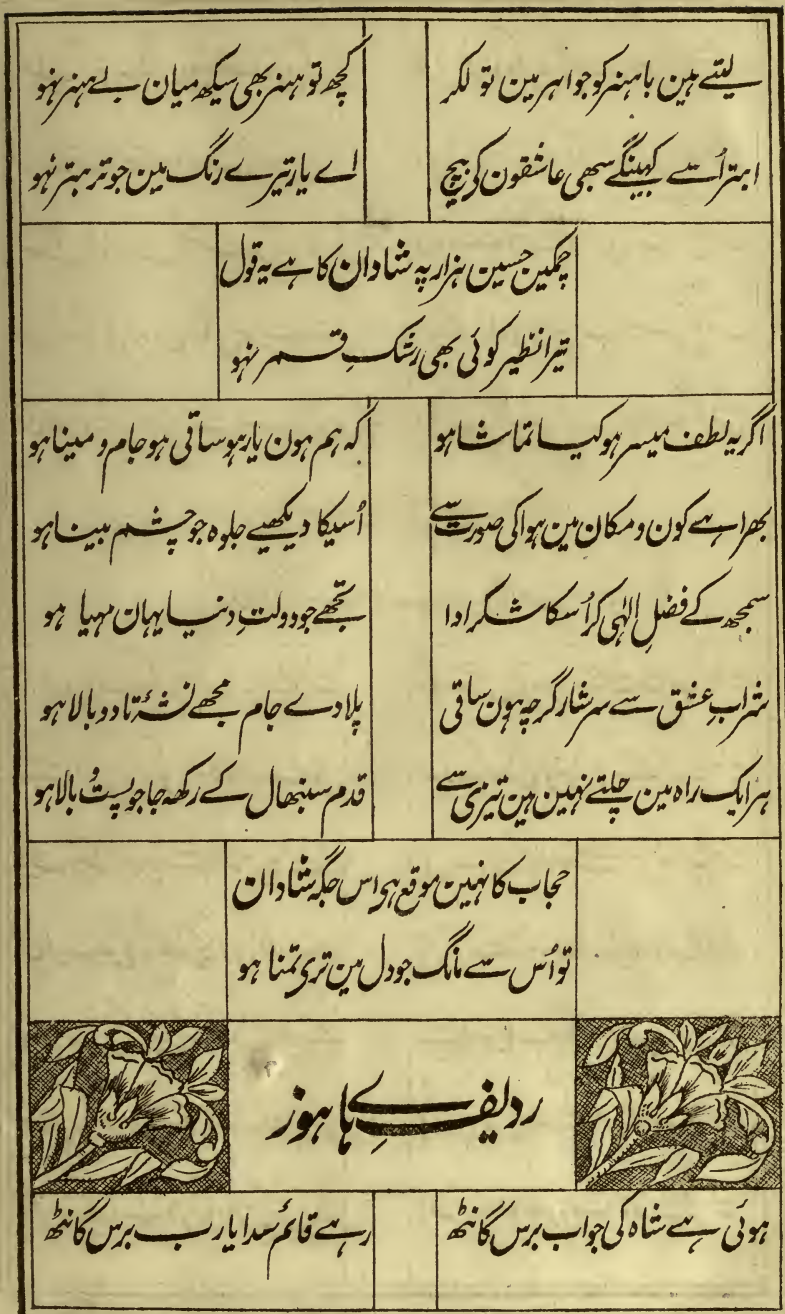 لیتے ہین باہنر کو جواہر مین تو لکر
کچھ تو ہنر بھی سیکھ میان بے ہنر نہو
ابتر اُسے کہینگے سبھی عاشقون کی بیچ
اے یار تیرے رنگ مین جو تر بتر نہو
چمکین حسین ہزار پہ شادان کا ہے یہ قول
تیرا نظیر کوئی بھی رشکِ قمر نہو
اگر یہ لطف میسر ہو کیا تماشا ہو
کہ ہم ہون یار ہو ساقی ہو جام و مینا ہو
بھرا ہے کون و مکان مین ہوا کی صورت سے
اُسیکا دیکھیے جلوہ جو چشم بینا ہو
سمجھ کے فضلِ الٰہی کر اُسکا شکر ادا
تجھے جو دولتِ دنیا یہان مہیا ہو
شرابِ عشق سے سرشار گرچہ ہون ساقی
پلادے جام مجھے نشۂ تا دوبالا ہو
ہر ایک راہ مین چلتے نہین ہین تیزی سے
قدم سنبھال کے رکھ جا جو پست و بالا ہو
حجاب کا نہین موقع ہی اس جگہ شادان
تو اُس سے مانگ جو دل مین تری تمنا ہو
ردیفِ ہاے ہوز
ہوئی ہے شاہ کی جو اب برس گانٹھ
رہے قائم سدا یا رب برس گانٹھ